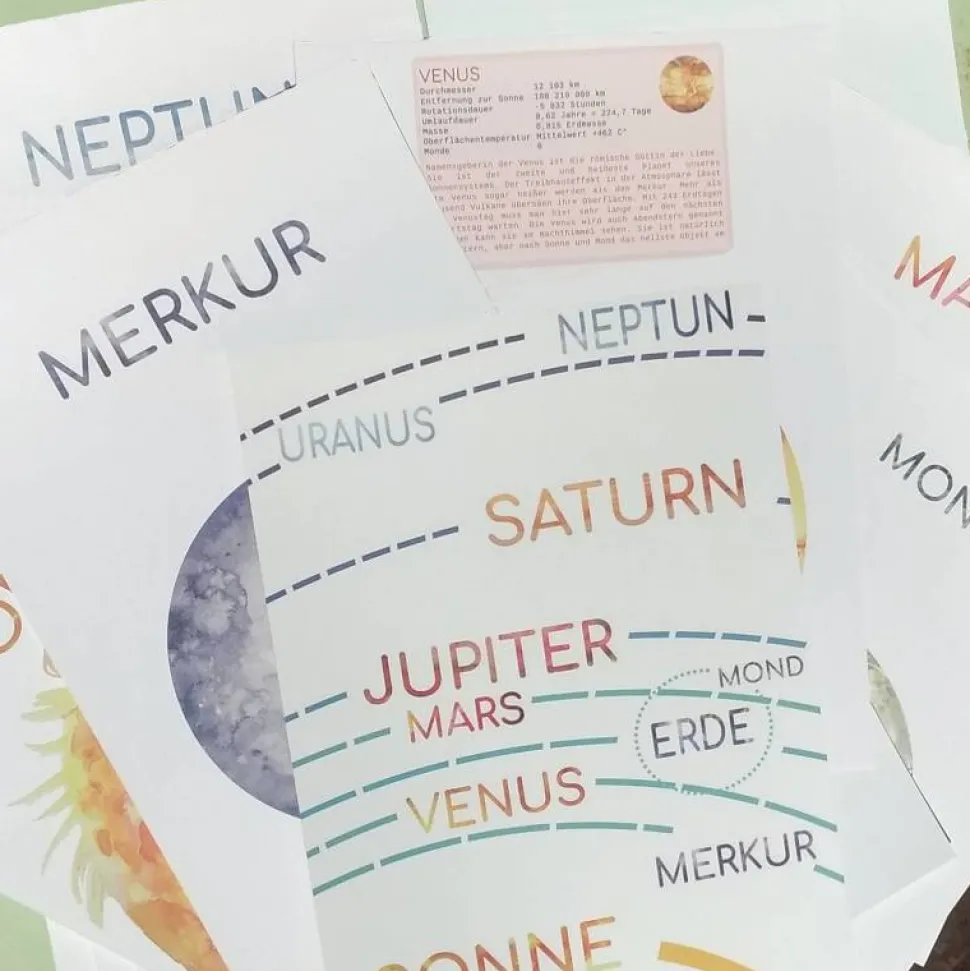 NEPTUN
VENUS
Durchmesser 12 103 km
Entfernung zur Sonne 108 210 000 km
Rotationsdauer -5 832 Stunden
Umlaufdauer 0,62 Jahre = 224,7 Tage
Masse 0,815 Erdmasse
Oberflächentemperatur Mittelwert +462 C°
Monde 0
Namensgeberin der Venus ist die römische Göttin der Liebe.
Sie ist der zweite und heißeste Planet unseres
onnensystems. Der Treibhauseffekt in der Atmosphäre lässt
Venus sogar heißer werden als den Merkur. Mehr als
usend Vulkane übersäen ihre Oberfläche. Mit 243 Erdtagen
Venustag muss man hier sehr lange auf den nächsten
rtstag warten. Die Venus wird auch Abendstern genannt
kann sie am Nachthimmel sehen. Sie ist natürlich
tern, aber nach Sonne und Mond das hellste Objekt am
MERKUR
MA
NEPTUN
URANUS
MON
SATURN
JUPITER
MOND
MARS
ERDE
VENUS
MERKUR
SONNE